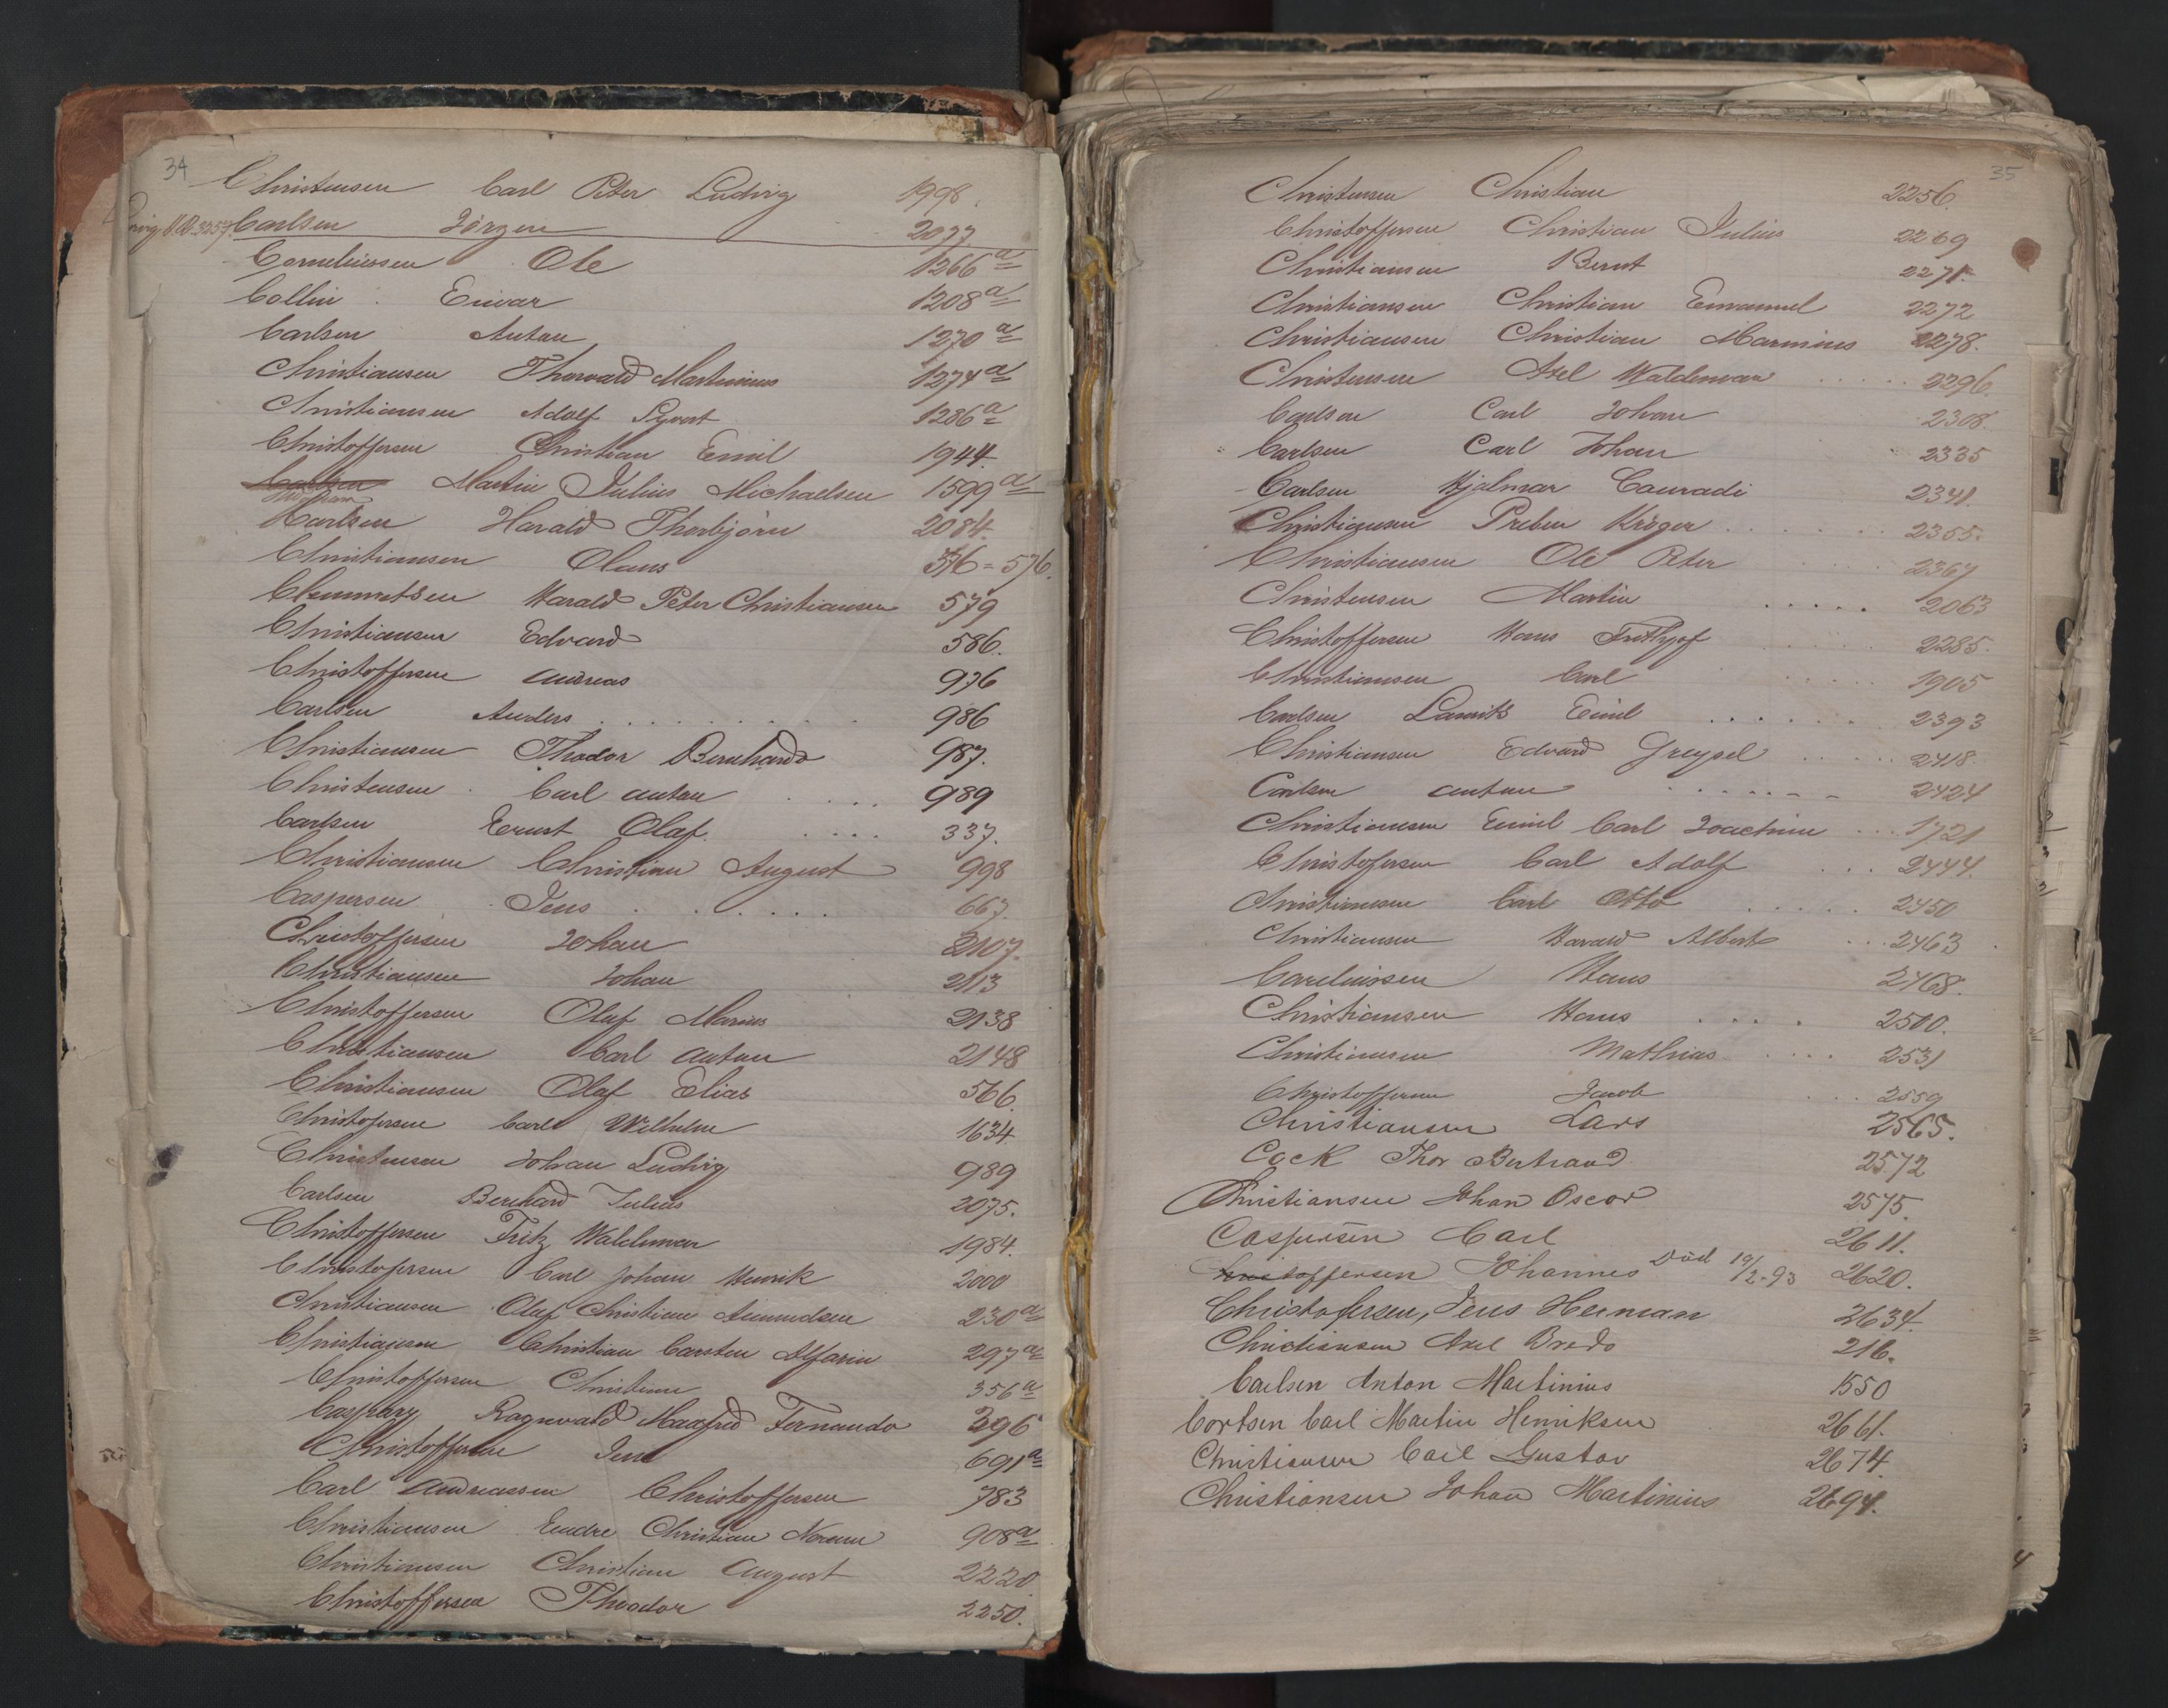 34
Christensen Carl Peter Ludvig 1998.
Carlsen Jörgen 2077
Corneliussen Ole 1266 a
Collin Einar 1208 a
Carlsen Anton 1270 a
Christiansen Thorvald Martinius 1274 a
Christiansen Adolf Syvert 1286 a
Christoffersen Christian Emil 1944.
Martin Julius Michaelsen 1599 a
Karlsen Harald Thorbjörn 2084.
Christiansen Olaus 376 = 576.
Clemmetsen Harald Peter Christiansen 579
Christiansen Edvard 586.
Christoffersen Andreas 976
Carlsen Anders 986
Christiansen Thodor Bernhard 987.
Christensen Carl Anton 989
Carlsen Ernst Olaf. 337.
Christiansen Christian August 998
Caspersen Jens 667.
Christoffersen Johan 2107.
Christiansen Johan 2113
Christoffersen Olaf Marius 2138
Christiansen Carl Anton 2148
Christiansen Olaf Elias 566.
Christofersen Carl Wilhelm 1634
Christensen Johan Ludvig 989
Carlsen Bernhard Julius 2075.
Christoffersen Fritz Waldemar 1984.
Christofersen Carl Johan Henrik 2000
Christiansen Olaf Christian Amundsen 230 a
Christiansen Christian Carsten Alfarin 297 a
Christoffersen Christian 356 a
Caspary Ragnvald Maxfred Fernando 396
Christoffersen Jens 691 a
Carl Andreassen Christoffersen 783
Christiansen Endre Christian Norman 908 a
Christiansen Christian August 2220
Christoffersen Theodor 2250.
35
Christensen Christian 2256.
Christoffersen Christian Julius 2269
Christiansen Bernt 2271.
Christiansen Christian Emanuel 2272
Christiansen Christian Marinius 2278.
Christensen Axel Waldemar 2296.
Carlsen Carl Johan 2308.
Carlsen Carl Johan 2335
Carlsen Hjalmar Conradi 2341.
Christiansen Preben Kröger 2355.
Christiansen Ole Peter 2367
Christensen Martin 2063
Christoffersen Hans Frithjof 2285.
Christiansen Carl 1905
Carlsen Laurits Emil 2393
Christiansen Edvard Greysel 2418.
Carlsen Anton 2424
Christiansen Emil Carl Joachim 1721
Christofersen Carl Adolf 2444.
Christiansen Carl Otto 2450
Christiansen Harald Albert 2463
Corneliussen Hans 2468.
Christiansen Hans 2500.
Christiansen Mathias 2531
Christoffersen Jacob 2559
Christiansen Lars 2565.
Cock Thor Bertrand 2572
Christiansen Johan Oscar 2575.
Caspersen Carl 2611.
Christoffersen Johannes Död 19/2-93 2620.
Christofersen, Jens Herman 2634.
Christiansen Axel Bredo 216.
Carlsen Anton Martinius 1550
Cortsen Carl Martin Henriksen 2661.
Christiansen Carl Gustav 2674.
Christiansen Johan Martinius 2694.